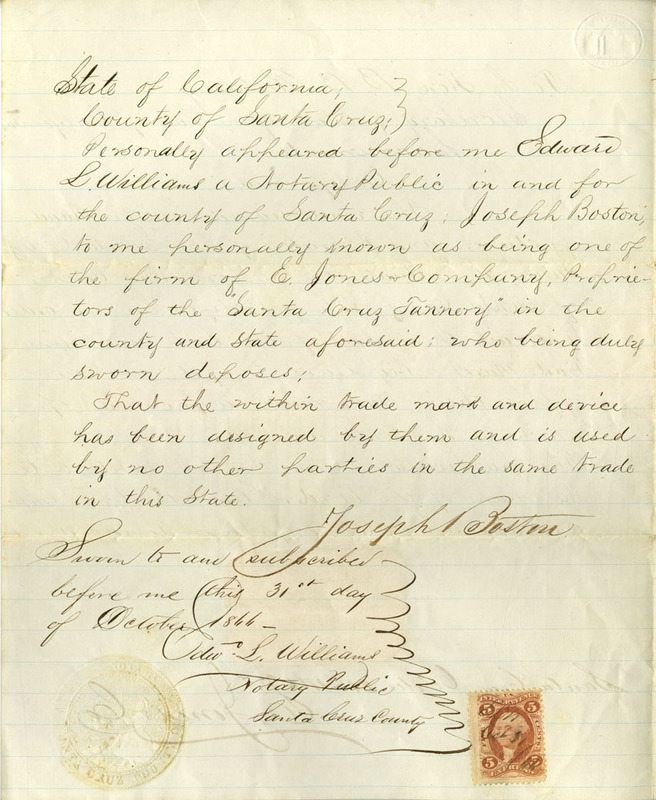 State of California,
County of Santa Cruz,
Personally appeared before me Edward
L. Williams a Notary Public in and for
the county of Santa Cruz, Joseph Boston,
to me personally known as being one of
the firm of E. Jones & Company, Proprie-
tors of the "Santa Cruz Tannery" in the
county and state aforesaid; who being duly
sworn deposes;
That the within trade mark and device
has been designed by them and is used
by no other parties in the same trade
in this State.
Joseph Boston
Sworn to and subscribed
before me this 31st day
of October 1866
Edwd. L. Williams
Notary Public
Santa Cruz County
5 5
Oct 31
5 5
EXPRESS